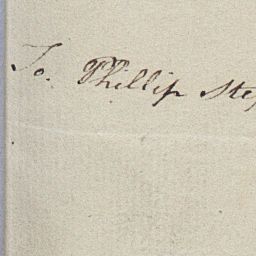 To. Phillip Step